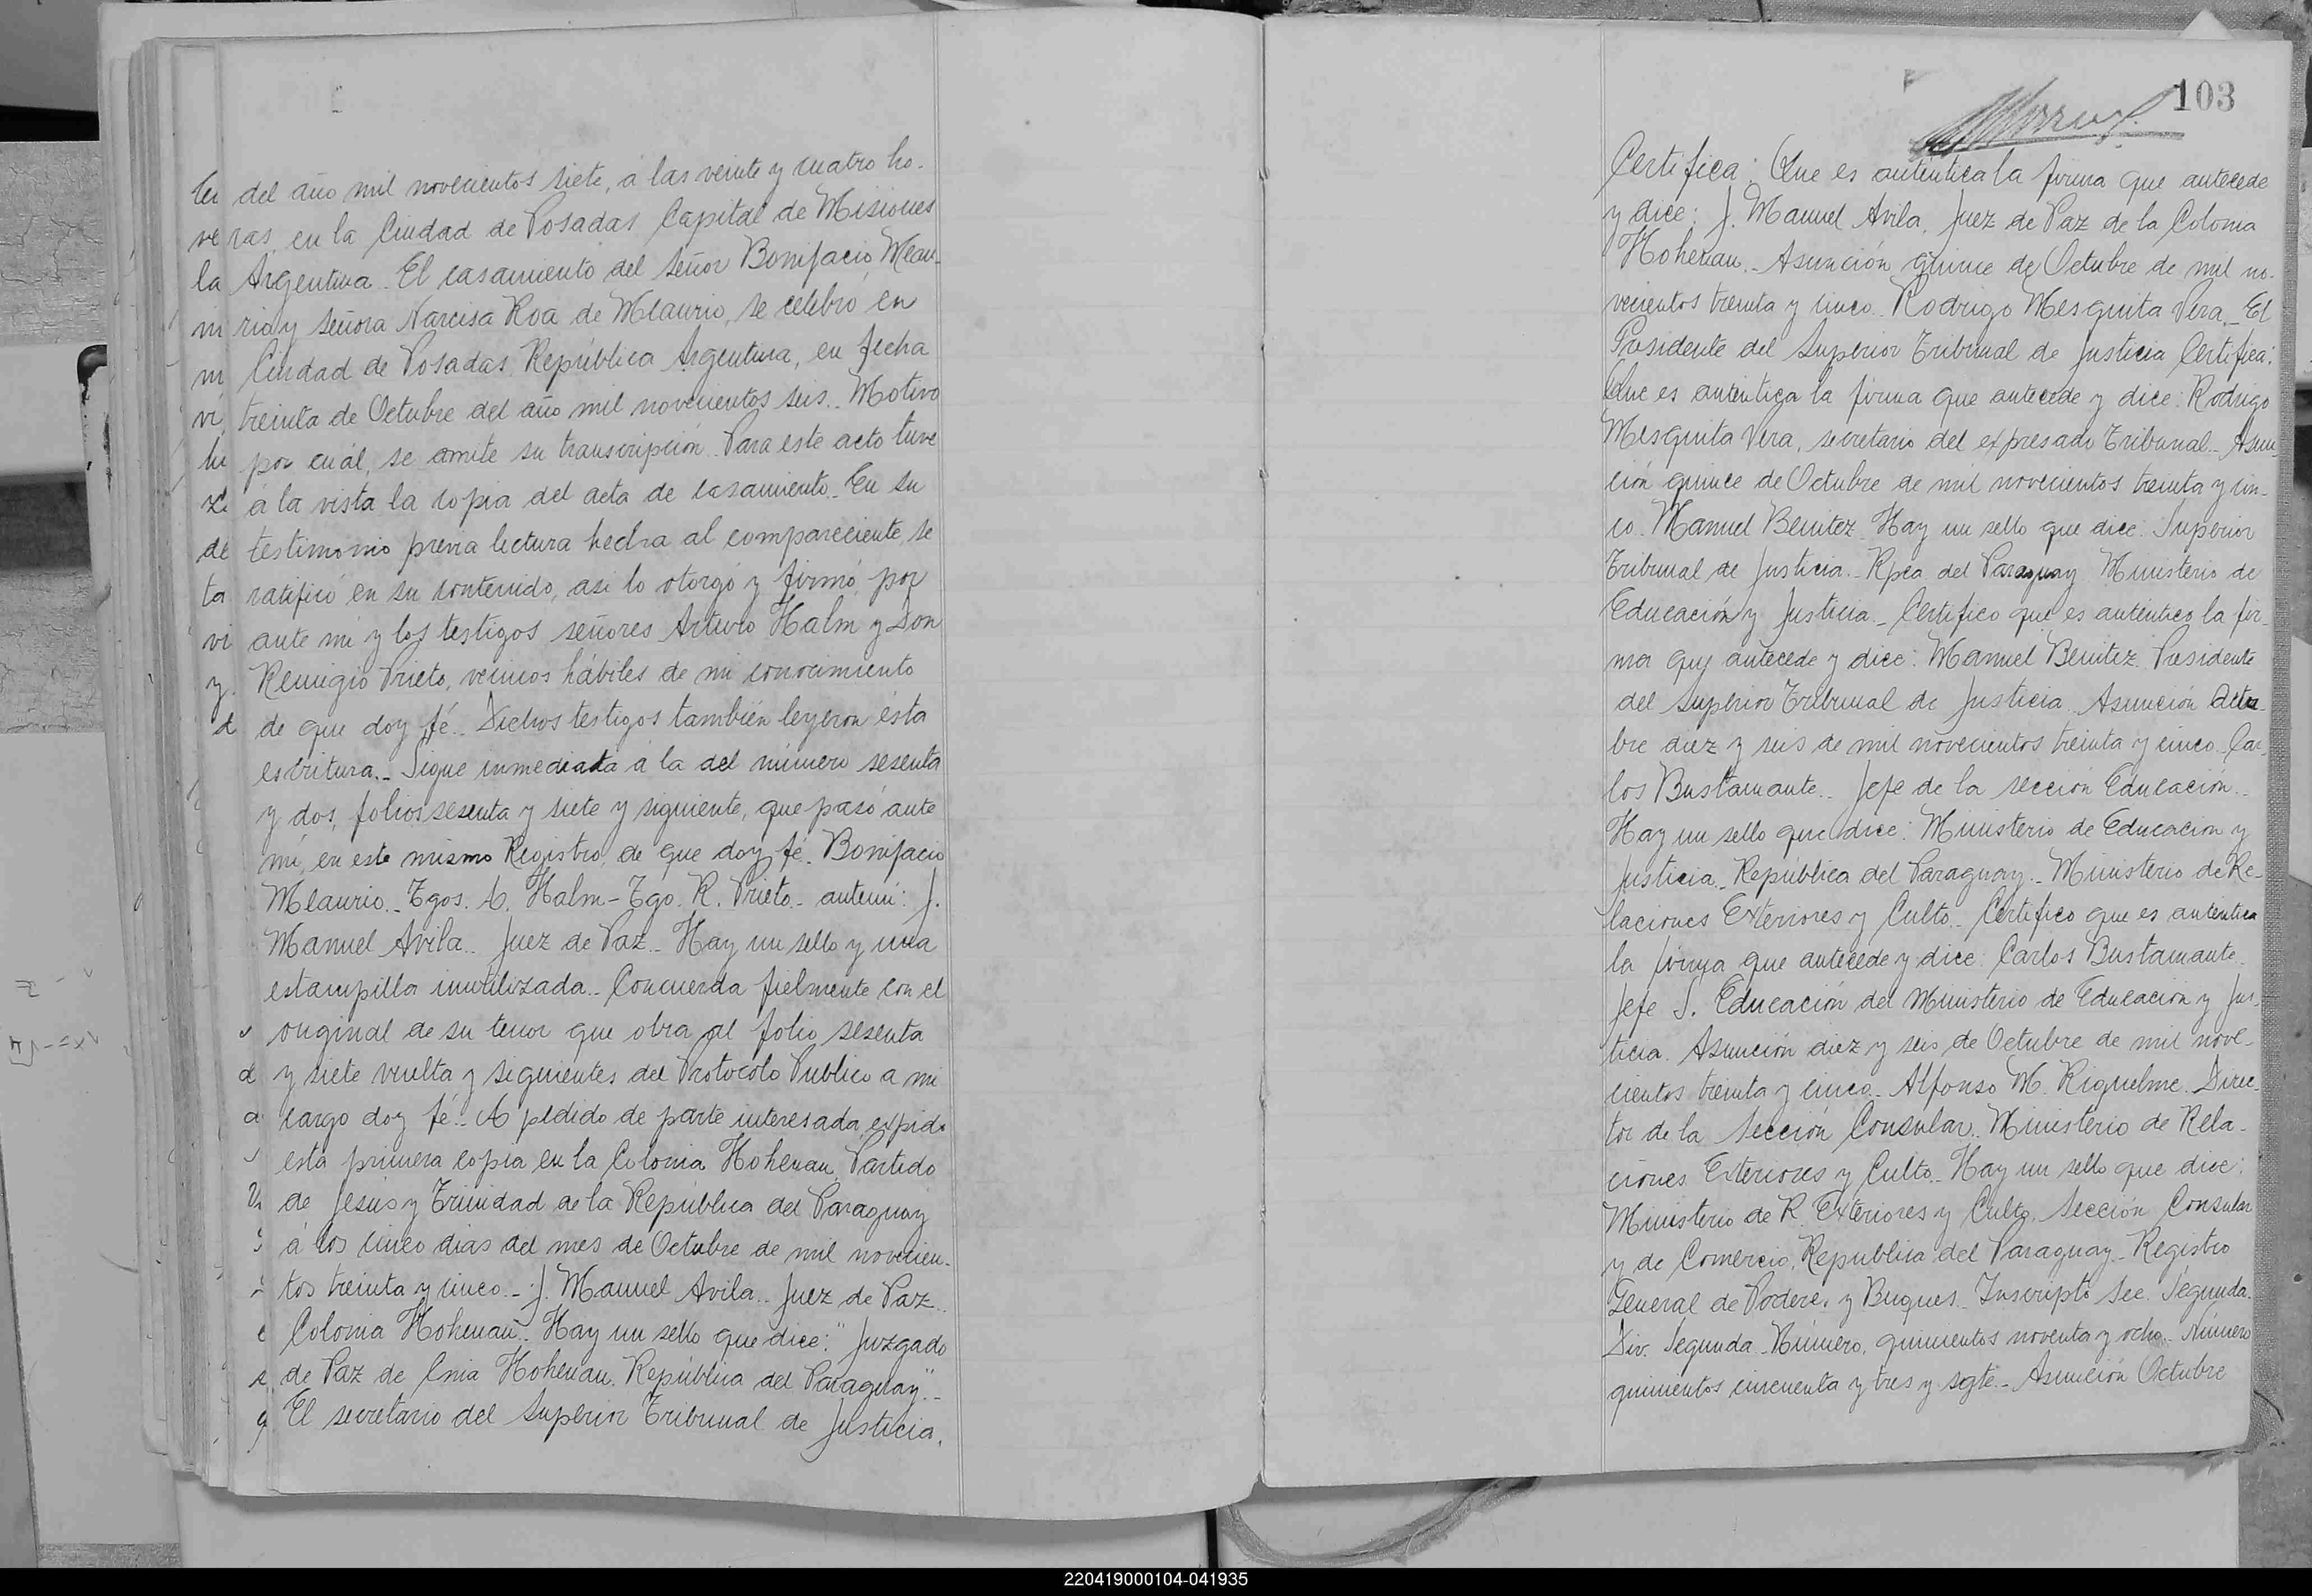 del año mil novecientos siete, á las veinte y cuatro ho-
ras, en la Ciudad de Posadas Capital de Misiones
Argentina. El casamiento del señor Bonifacio Mlau-
rio y señora Narcisa Roa de Mlaurio, se celebró en
Ciudad de Posadas República Argentina, en fecha
treinta de Octubre del año mil novecientos seis. Motivo
por cuál, se omite su transcripción. Para este acto tuve
á la vista la copia del acta de casamiento. En su
testimonio previa lectura hecha al compareciente, se
ratificó en su contenido, asi lo otorgó y firmó, por
ante mi y los testigos señores Arturo Halm y Don
Remigio Prieto, vecinos hábiles de mi conocimiento
de que doy fé. Dichos testigos también leyeron ésta
escritura. Sigue inmediata á la del número sesenta
y dos, folios sesenta y siete y siguiente, que pasó ante
mi, en este mismo Registro, de que doy fé. Bonifacio
Mlaurio. Tgos. A. Halm - Tgo. R. Prieto. antemi: J.
Manuel Avila. Juez de Paz. Hay un sello y una
estampilla inutilizada. Concuerda fielmente con el
original de su tenor que obra al folio sesenta
y siete vuelta y siguientes del Protocolo Publico a mi
cargo doy fé. A pedido de parte interesada expido
esta primera copia en la Colonia Hohenau, Partido
de Jesús y Trinidad de la República del Paraguay
á los cinco dias del mes de Octubre de mil novecien-
tos treinta y cinco. J. Manuel Avila. Juez de Paz.
Colonia Hohenau. Hay un sello que dice: "Juzgado
de Paz de Cnia Hohenau. República del Paraguay".
El secretario del Superior Tribunal de Justicia.
103
Certifica: Que es autentica la firma que antecede
y dice: J. Manuel Avila, Juez de Paz de la Colonia
Hohenau. Asunción quince de Octubre de mil no-
vecientos treinta y cinco. Rodrigo Mesquita Vera. El
Presidente del Superior Tribunal de Justicia Certifica:
Que es auténtica la firma que antecede y dice: Rodrigo
Mesquita Vera, secretario del expresado Tribunal. Asun-
ción quince de Octubre de mil novecientos treinta y cin-
co. Manuel Benitez. Hay un sello que dice: Superior
Tribunal de Justicia. Rpca del Paraguay. Ministerio de
Educación y Justicia. Certifico que es auténtico la fir-
ma que antecede y dice: Manuel Benitez. Presidente
del Superior Tribunal de Justicia. Asunción Octu-
bre diez y seis de mil novecientos treinta y cinco. Car-
los Bustamante. Jefe de la sección Educación.
Hay un sello que dice: Ministerio de Educación y
Justicia. República del Paraguay. Ministerio de Re-
laciones Exteriores y Culto. Certifico que es auténtica
la firma que antecede y dice: Carlos Bustamante.
Jefe S. Educación del Ministerio de Educación y Jus-
ticia. Asunción diez y seis de Octubre de mil nove-
cientos treinta y cinco. Alfonso M. Riquelme. Direc-
tor de la Sección Consular. Ministerio de Rela-
ciones Exteriores y Culto. Hay un sello que dice:
Ministerio de R. Exteriores y Culto. Sección Consular
y de Comercio, Republica del Paraguay. Registro
General de Poderes y Buques. Inscripto Sec. Segunda.
Div. Segunda. Número, quinientos noventa y ocho. Número
quinientos cincuenta y tres y sgte. Asunción Octubre
220419000104-041935